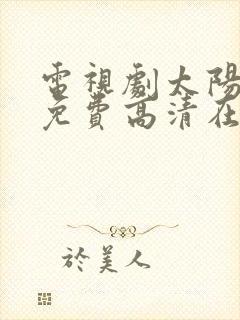 電視劇太陽
免費高清在
於美人